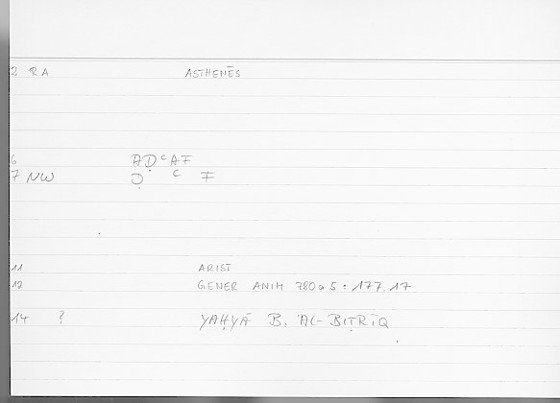 2 RA ASTHENĒS
6 AḌʿAF
7 NW Ḍ ʿ F
11 ARIST
12 GENER ANIM 780a5 : 177.17
14 ? YAḤYĀ B. AL-BIṬRĪQ